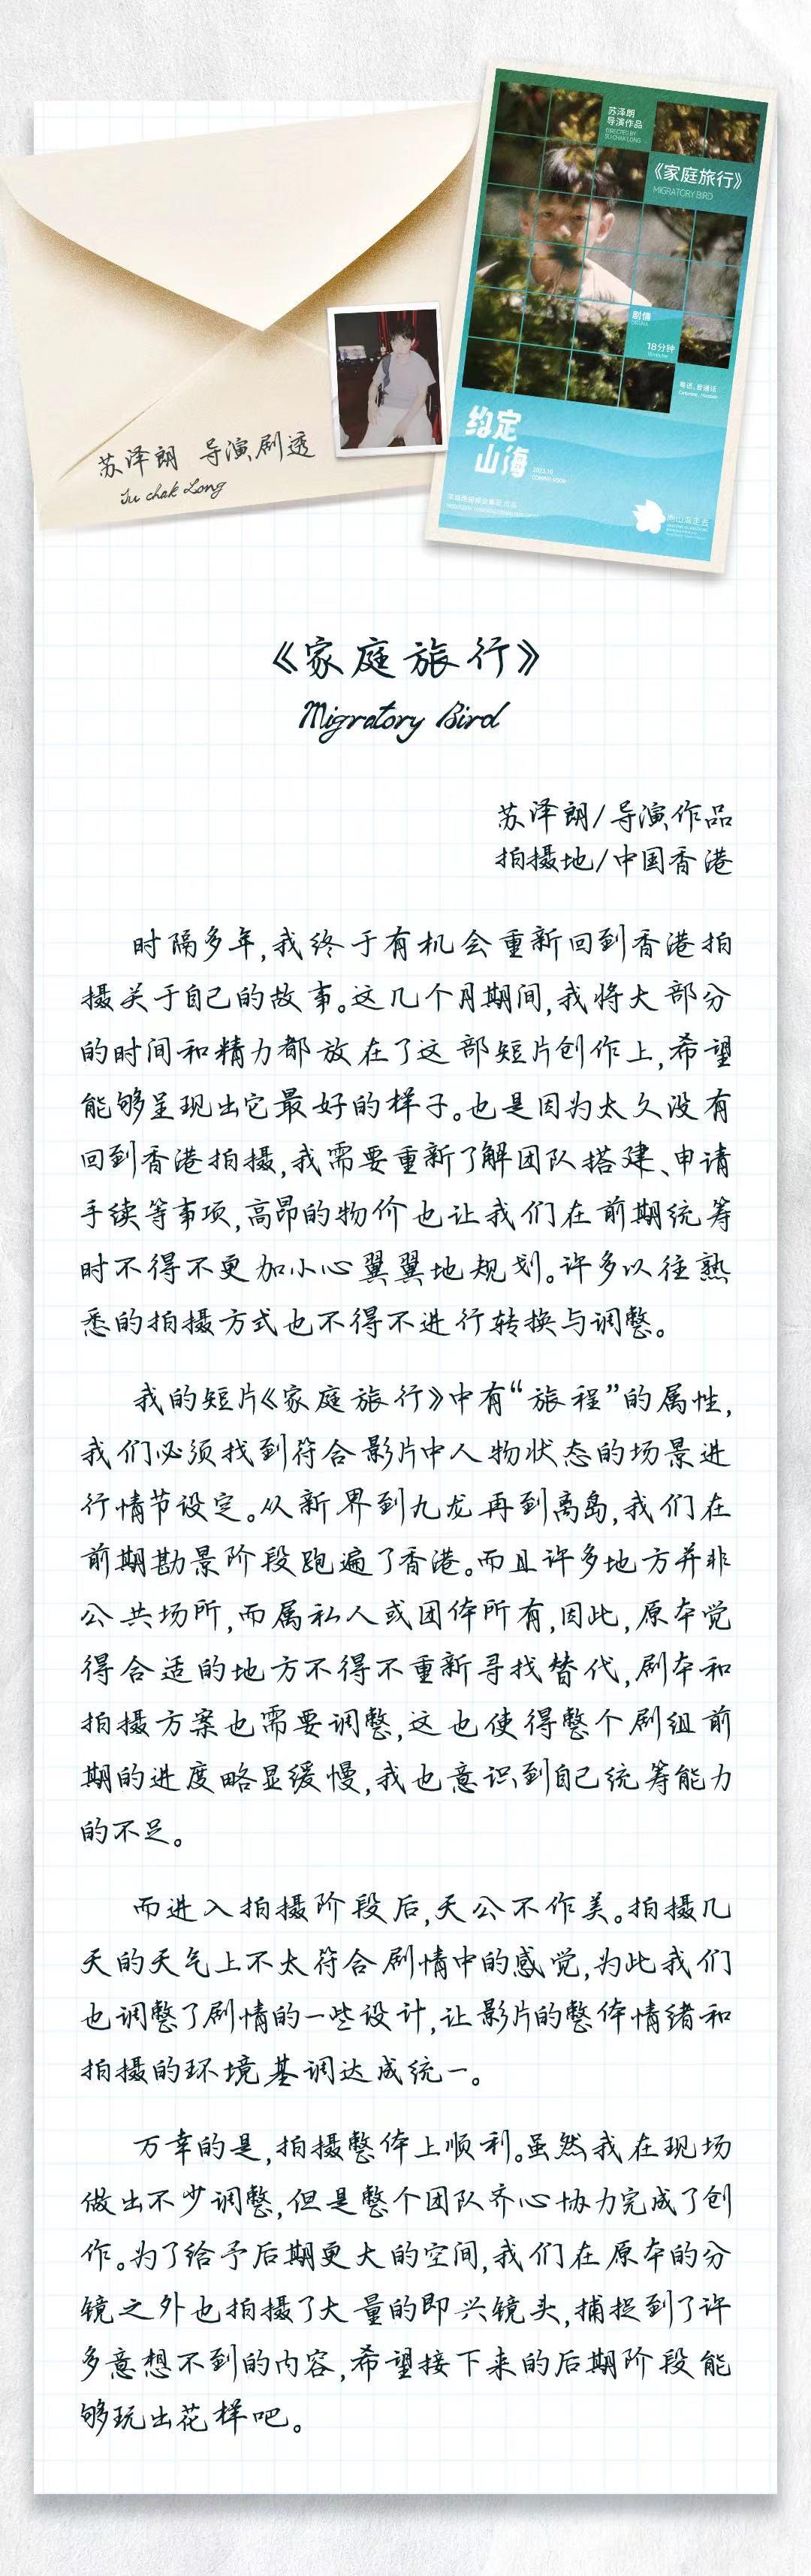 苏泽朗
导演作品
DIRECTED BY
SU CHAK LONG
《家庭旅行》
MIGRATORY BIRD
剧情
DRAMA
18分钟
粤语、普通话
约定
山海
2023.10
COMING SOON
向山海走去
苏泽朗 导演剧透
Su chak Long
《家庭旅行》
Migratory Bird
苏泽朗/导演作品
拍摄地/中国香港
时隔多年,我终于有机会重新回到香港拍
摄关于自己的故事。这几个月期间,我将大部分
的时间和精力都放在了这部短片创作上,希望
能够呈现出它最好的样子。也是因为太久没有
回到香港拍摄,我需要重新了解团队搭建、申请
手续等事项,高昂的物价也让我们在前期统筹
时不得不更加小心翼翼地规划。许多以往熟
悉的拍摄方式也不得不进行转换与调整。
我的短片《家庭旅行》中有“旅程”的属性,
我们必须找到符合影片中人物状态的场景进
行情节设定。从新界到九龙再到离岛,我们在
前期勘景阶段跑遍了香港。而且许多地方并非
公共场所,而属私人或团体所有,因此,原本觉
得合适的地方不得不重新寻找替代,剧本和
拍摄方案也需要调整,这也使得整个剧组前
期的进度略显缓慢,我也意识到自己统筹能力
的不足。
而进入拍摄阶段后,天公不作美。拍摄几
天的天气上不太符合剧情中的感觉,为此我们
也调整了剧情的一些设计,让影片的整体情绪和
拍摄的环境基调达成统一。
万幸的是,拍摄整体上顺利。虽然我在现场
做出不少调整,但是整个团队齐心协力完成了创
作。为了给予后期更大的空间,我们在原本的分
镜之外也拍摄了大量的即兴镜头,捕捉到了许
多意想不到的内容,希望接下来的后期阶段能
够玩出花样吧。